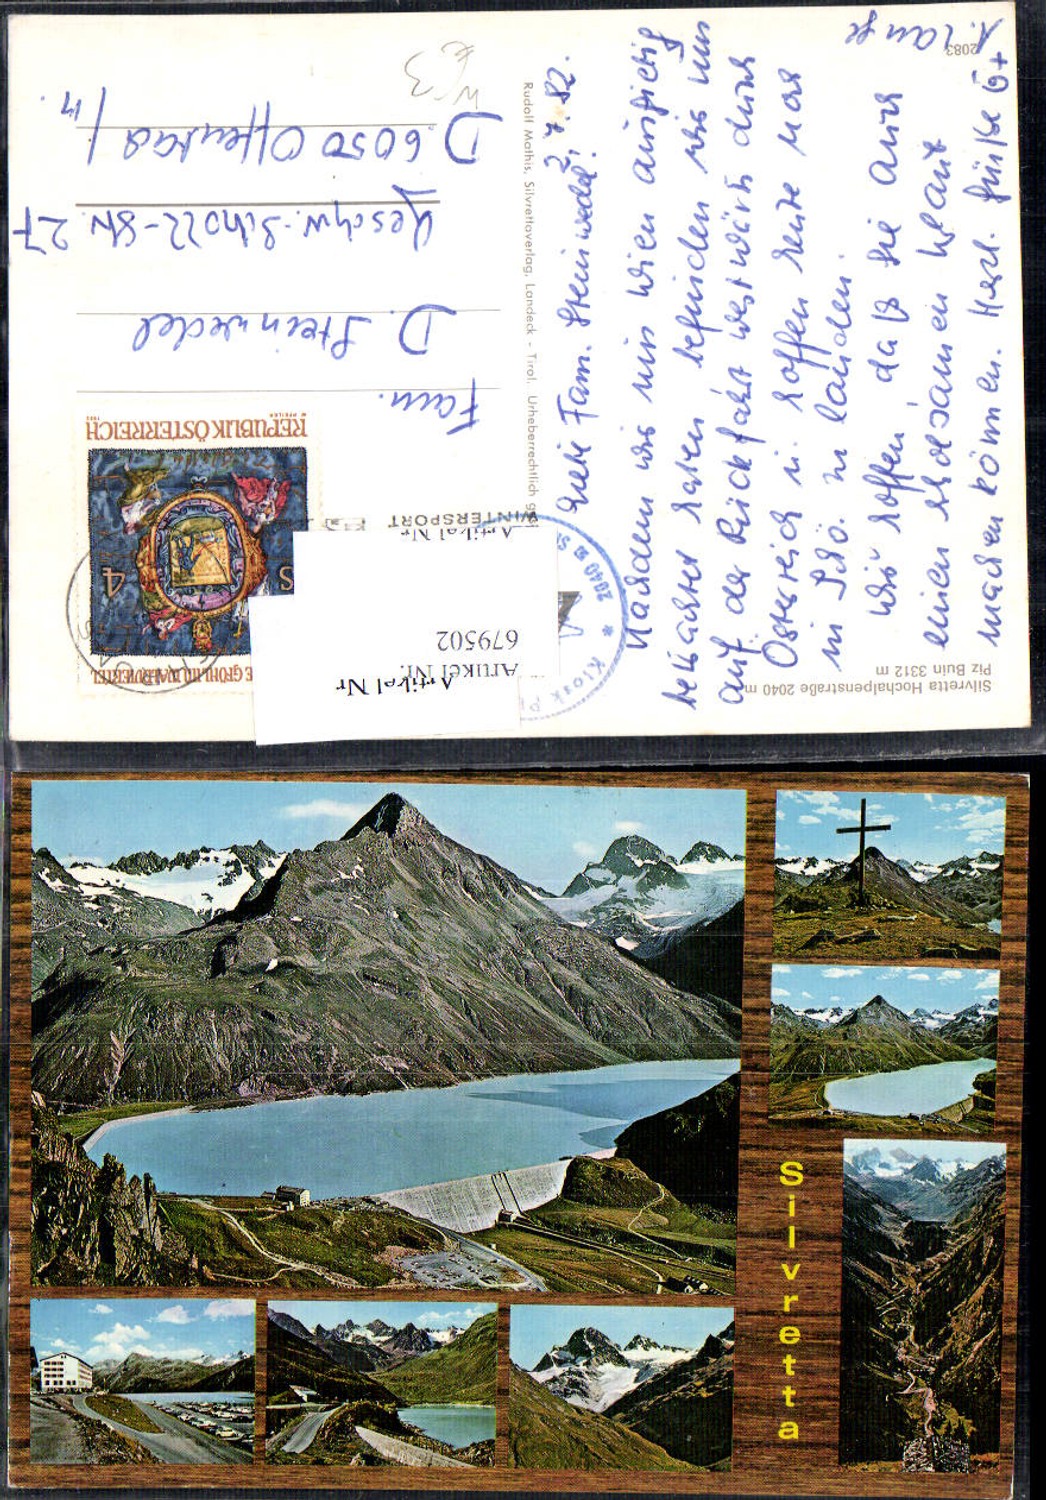 2083
Silvretta Hochalpenstraße 2040 m
Piz Buin 3312 m
2, 7. 82.
Liebe Fam. Steinwedel!
Nachdem wir nun Wien ausgiebig
betrachtet haben befinden wir uns
auf der Rückfahrt westwärts durch
Österreich u. hoffen heute noch
in Schö. zu landen.
Wir hoffen, daß Sie auch
einen erholsamen Urlaub
machen können. Herzl. Grüße
Rudolf Mathis, Silvrettaverlag, Landeck - Tirol. Urheberrechtlich
WINTERSPORT
REPUBLIK ÖSTERREICH
S 4
Fam.
D. Steinwedel
Geschw.-Scholl-Str. 27
D 6050 Offenbach/M.
Artikel Nr.
679502
Artikel Nr.
Artikel Nr
* Kiosk
2040 m
Silvretta